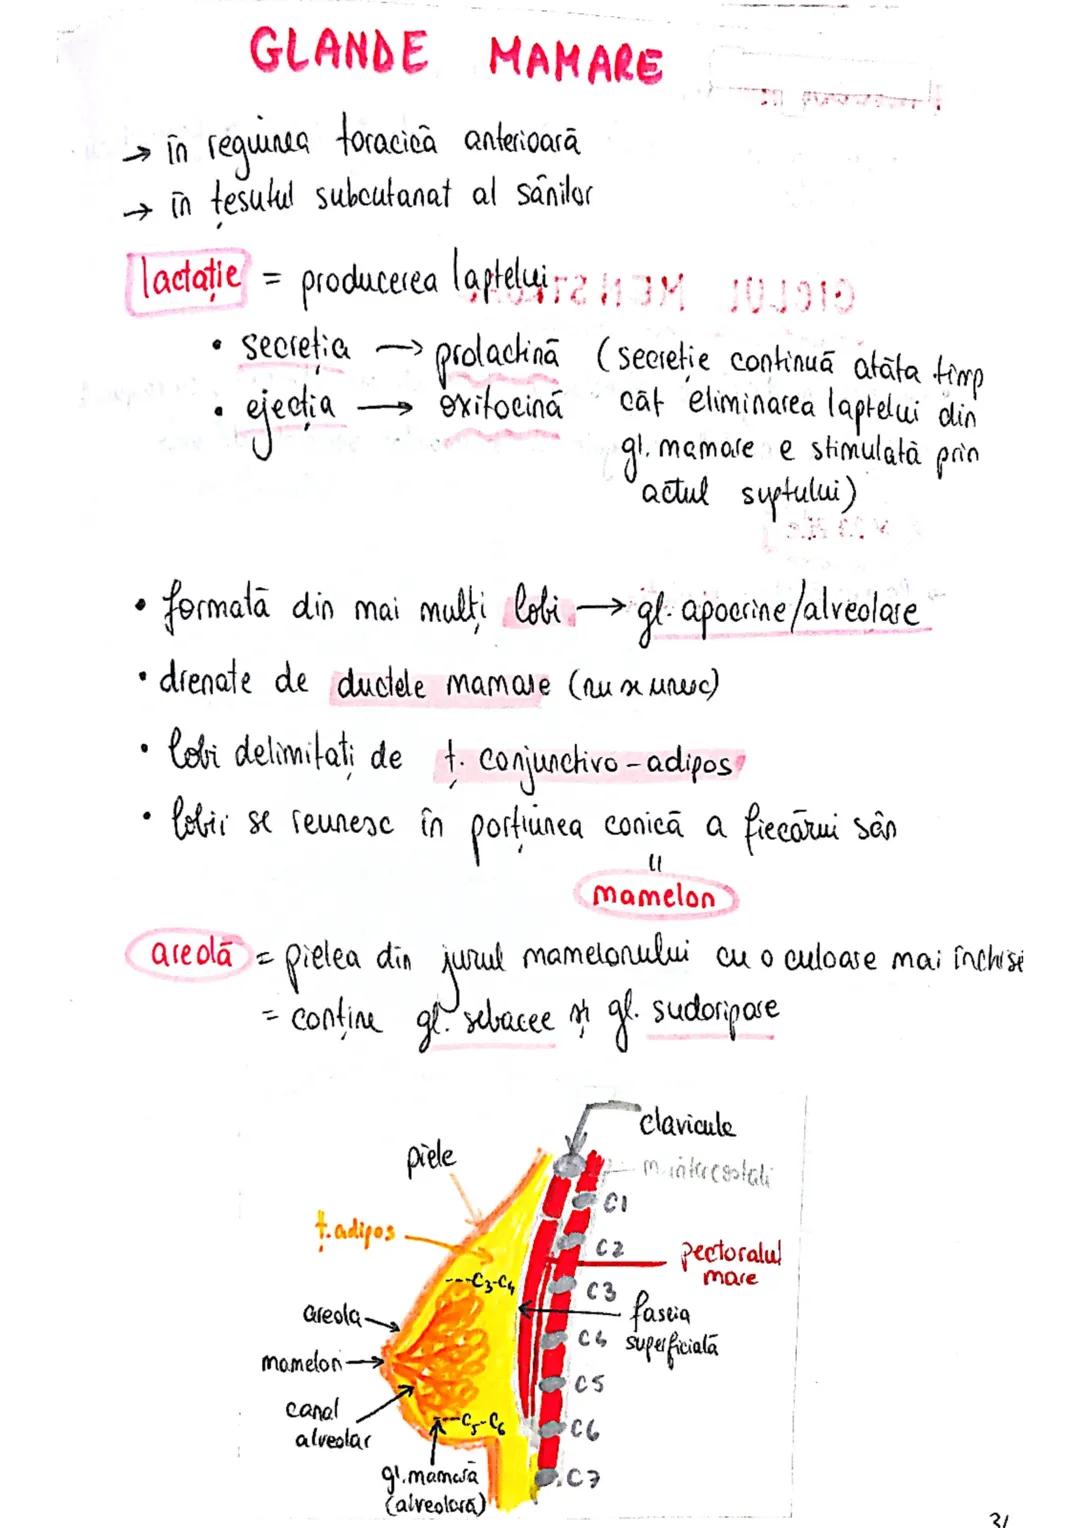 GLANDE MAMARE
→ în regiunea toracică anterioară
→ în țesutul subcutanat al sânilor
lactație = producerea laptelui
• secreția → prolactină (secreție continuă atâta timp
• ejecția → oxitocină cât eliminarea laptelui din
gl. mamare e stimulată prin
actul suptului)
• formată din mai mulți lobi → gl. apocrine/alveolare
• drenate de ductele mamare (nu se unesc)
• lobi delimitați de ț. conjunctivo-adipos
• lobii se reunesc în porțiunea conică a fiecărui sân
"
mamelon
areolă = pielea din jurul mamelonului cu o culoare mai închisă
= conține gl. sebacee și gl. sudoripare
clavicule
piele
m. intercostali
C1
ț. adipos
C2
pectoralul
mare
---C3-C4
C3
areola
fascia
C4 superficială
mamelon
C5
canal
alveolar
---C5-C6
C6
gl. mamară
(alveolară)
C7
31